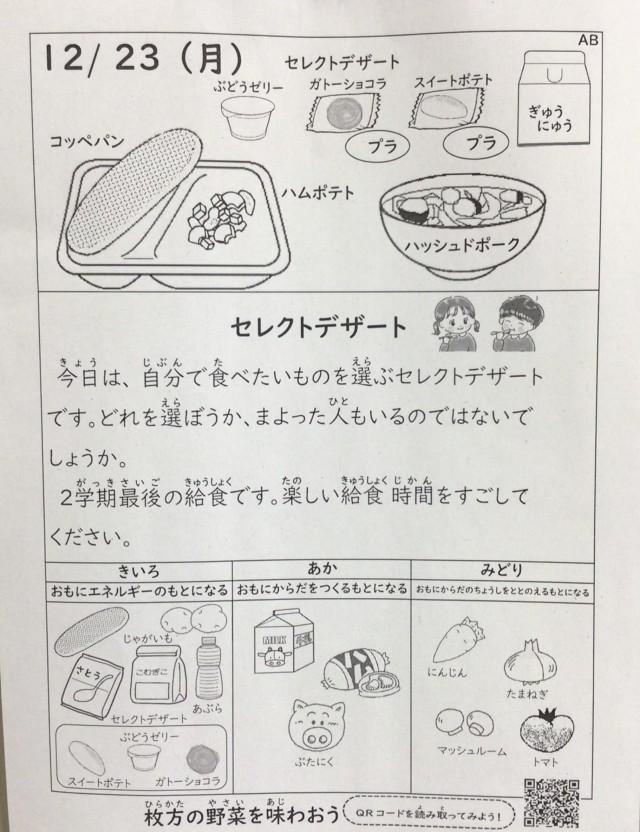 AB
12/ 23（月）
セレクトデザート
ぶどうゼリー
ガトーショコラ
スイートポテト
プラ
プラ
ぎゅう
にゅう
コッペパン
ハムポテト
ハッシュドポーク
セレクトデザート
きょう じぶん た えら
今日は、自分で食べたいものを選ぶセレクトデザート
えら ひと
です。どれを選ぼうか、まよった人もいるのではないで
しょうか。
がっきさいご きゅうしょく たの きゅうしょく じかん
2学期最後の給食です。楽しい給食 時間をすごして
ください。
きいろ
おもにエネルギーのもとになる
じゃがいも
さとう
こむぎこ
あぶら
セレクトデザート
ぶどうゼリー
スイートポテト
ガトーショコラ
あか
おもにからだをつくるもとになる
MILK
ぶたにく
みどり
おもにからだのちょうしをととのえるもとになる
にんじん
たまねぎ
マッシュルーム
トマト
ひらかた やさい あじ
枚方の野菜を味わおう
QRコードを読み取ってみよう！